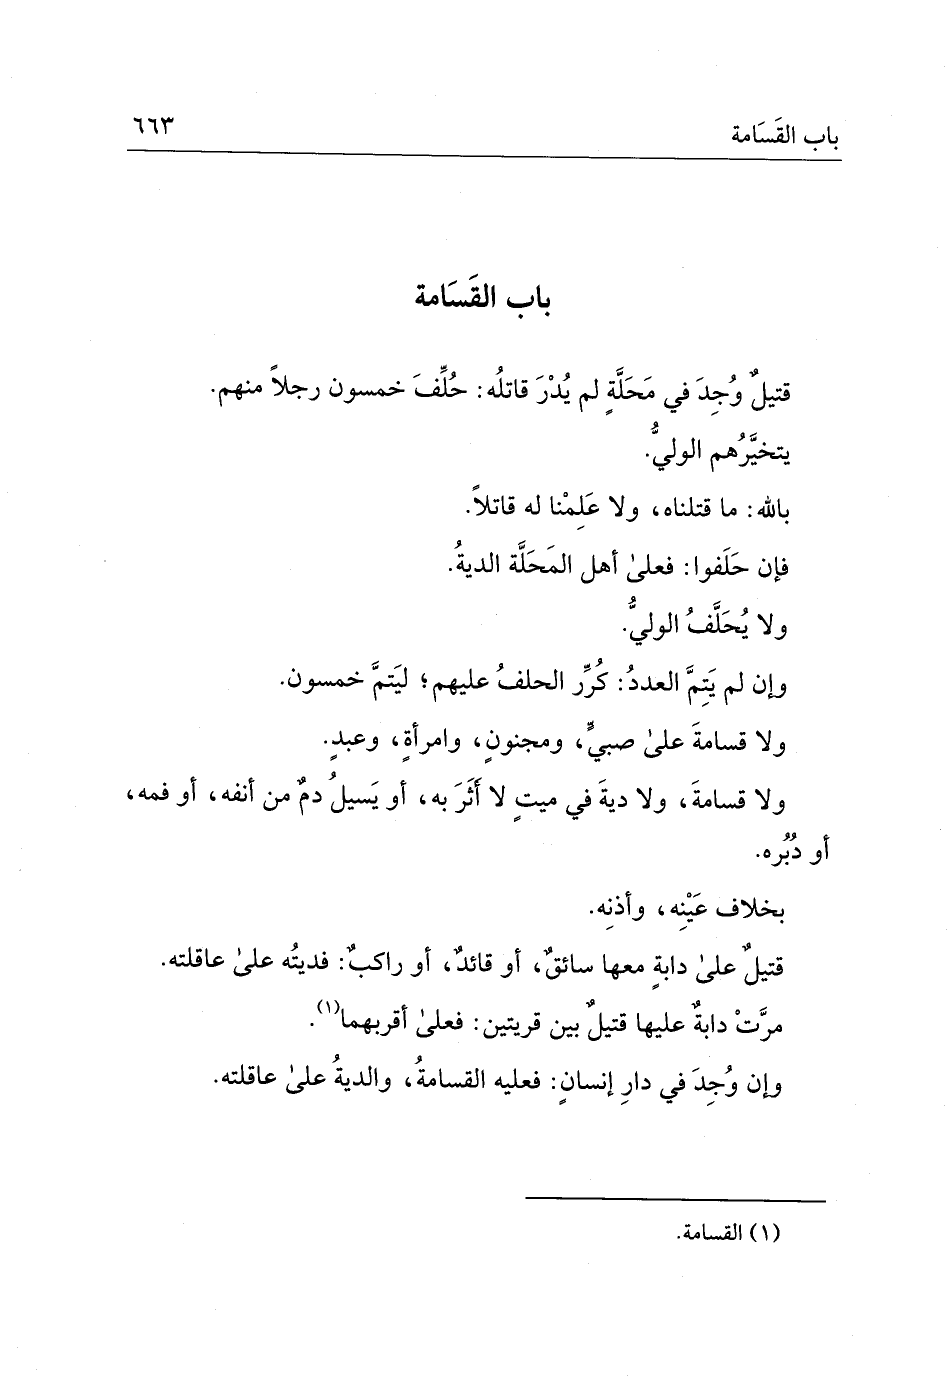 باب القَسَامة ٦٦٣
باب القَسَامة
قتيلٌ وُجِدَ في مَحَلَّةٍ لم يُدْرَ قاتلُه: حُلِّفَ خمسون رجلاً منهم.
يتخيَّرُهم الوليُّ.
بالله: ما قتلناه، ولا عَلِمْنا له قاتلاً.
فإن حَلَفوا: فعلىٰ أهل المَحَلَّة الديةُ.
ولا يُحَلَّفُ الوليُّ.
وإن لم يَتِمَّ العددُ: كُرِّر الحلفُ عليهم؛ ليَتمَّ خمسون.
ولا قسامةَ علىٰ صبيٍّ، ومجنونٍ، وامرأةٍ، وعبدٍ.
ولا قسامةَ، ولا ديةَ في ميتٍ لا أَثَرَ به، أو يَسيلُ دمٌ من أنفه، أو فمه،
أو دُبُره.
بخلاف عَيْنِه، وأذنِه.
قتيلٌ علىٰ دابةٍ معها سائقٌ، أو قائدٌ، أو راكبٌ: فديتُه علىٰ عاقلته.
مرَّتْ دابةٌ عليها قتيلٌ بين قريتين: فعلىٰ أقربهما(١).
وإن وُجِدَ في دارِ إنسانٍ: فعليه القسامةُ، والديةُ علىٰ عاقلته.
(١) القسامة.